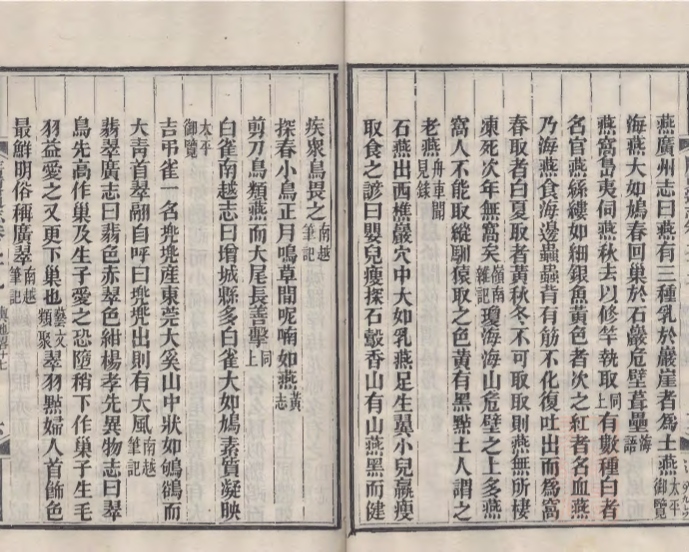 燕廣州志曰燕有三種乳於巖崖者爲土燕太平御覽
海燕大如鳩春回巢於石巖危壁葺壘海語
燕窩島夷伺燕秋去以修竿執取同上有數種白者
名官燕絲縷如細銀魚黃色者次之紅者名血燕
乃海燕食海邊蟲蟲背有筋不化復吐出而爲窩
春取者白夏取者黃秋冬不可取取則燕無所棲
凍死次年無窩矣嶺南雜記瓊海海山危壁之上多燕
窩人不能取縱馴猿取之色黃有黑點土人謂之
老燕舟車聞見錄
石燕出西樵巖穴中大如乳燕足生翼小兒羸瘦
取食之諺曰嬰兒瘦探石鷇香山有山燕黑而健
疾衆鳥畏之南越筆記
探春小鳥正月鳴草間呢喃如燕黃志
剪刀鳥類燕而大尾長善擊同上
白雀南越志曰增城縣多白雀大如鳩素質凝映
太平御覽
吉弔雀一名兠兠產東莞大奚山中狀如鴝鵒而
大青首翠翮自呼曰兠兠出則有大風南越筆記
翡翠廣志曰翡色赤翠色紺楊孝先異物志曰翠
鳥先高作巢及生子愛之恐墮稍下作巢子生毛
羽益愛之又更下巢也藝文類聚翠羽㸃婦人首飾色
最鮮明俗稱廣翠南越筆記